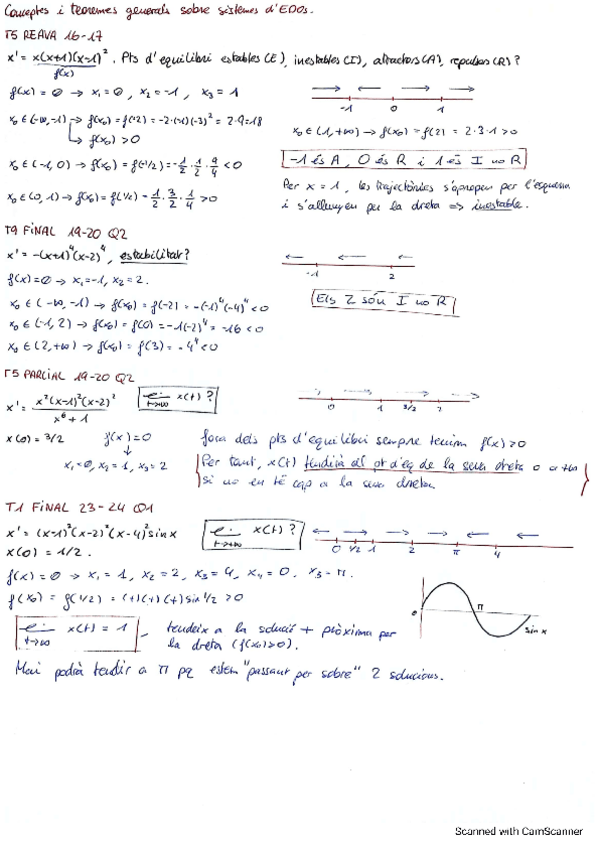 Conceptes i teoremes generals sobre sistemes d'EDOs.
T5 REAVA 16-17
x' = x(x+1)(x-1)². Pts d'equilibri estables (E), inestables (I), atractors (A), repulsors (R)?
f(x)
f(x) = 0 → x₁ = 0, x₂ = -1, x₃ = 1
-1 0 1
x₀ ∈ (-∞, -1) → f(x₀) = f(-2) = -2·(-1)(-3)² = 2·9 = 18
↳ f(x₀) > 0
x₀ ∈ (1, +∞) → f(x₀) = f(2) = 2·3·1 > 0
x₀ ∈ (-1, 0) → f(x₀) = f(-1/2) = -1/2 · 1/2 · 9/4 < 0
-1 és A, 0 és R i 1 és I no R
x₀ ∈ (0, 1) → f(x₀) = f(1/2) = 1/2 · 3/2 · 1/4 > 0
Per x = 1, les trajectòries s'apropen per l'esquerra
i s'allunyen per la dreta ⇒ inestable.
T9 FINAL 19-20 Q2
x' = -(x+1)⁴(x-2)⁴, estabilitat?
-1 2
f(x) = 0 → x₁ = -1, x₂ = 2.
x₀ ∈ (-∞, -1) → f(x₀) = f(-2) = -(-1)⁴(-4)⁴ < 0
Els 2 són I no R
x₀ ∈ (-1, 2) → f(x₀) = f(0) = -1(-2)⁴ = -16 < 0
x₀ ∈ (2, +∞) → f(x₀) = f(3) = -4⁴ < 0
T5 PARCIAL 19-20 Q2
x' = x²(x-1)²(x-2)² / x⁶ + 1
lim t→+∞ x(t)?
0 1 3/2 2
x(0) = 3/2 f(x) = 0
↓
x₁ = 0, x₂ = 1, x₃ = 2
fora dels pts d'equilibri sempre tenim f(x) > 0
Per tant, x(t) tendirà al pt d'eq de la seua dreta o a +∞
si no en té cap a la seua dreta.
T1 FINAL 23-24 Q1
x' = (x-1)²(x-2)²(x-4)² sin x
lim t→+∞ x(t)?
0 1/2 1 2 π 4
x(0) = 1/2.
f(x) = 0 → x₁ = 1, x₂ = 2, x₃ = 4, x₄ = 0, x₅ = π.
f(x₀) = f(1/2) = (+)(+)(+) sin 1/2 > 0
0 π sin x
lim t→+∞ x(t) = 1 tendeix a la solució + pròxima per
la dreta (f(x₀) > 0).
Mai podrà tendir a π pq estem "passant per sobre" 2 solucions.
Scanned with CamScanner